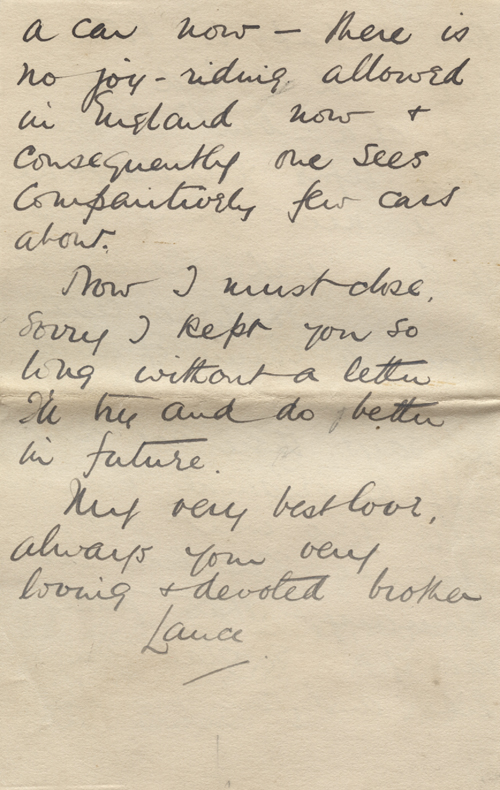 a car now – there is
no joy-riding allowed
in England now +
consequently one sees
Comparitively few cars
about.
Now I must close,
Sorry I kept you so
long without a letter
I'll try and do better
in future.
My very best love,
always your very
loving & devoted brother
Lance